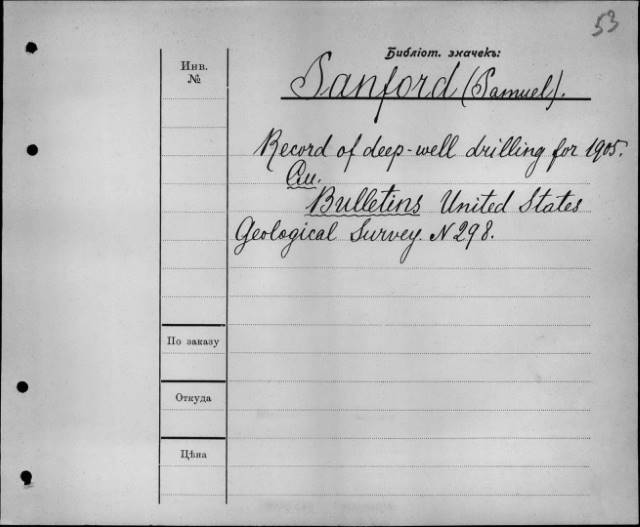 53
Библіот. значекъ:
Инв.
№
Sanford (Samuel).
Record of deep-well drilling for 1905.
См.
Bulletins United States
Geological Survey. N 298.
По заказу
Откуда
Цѣна